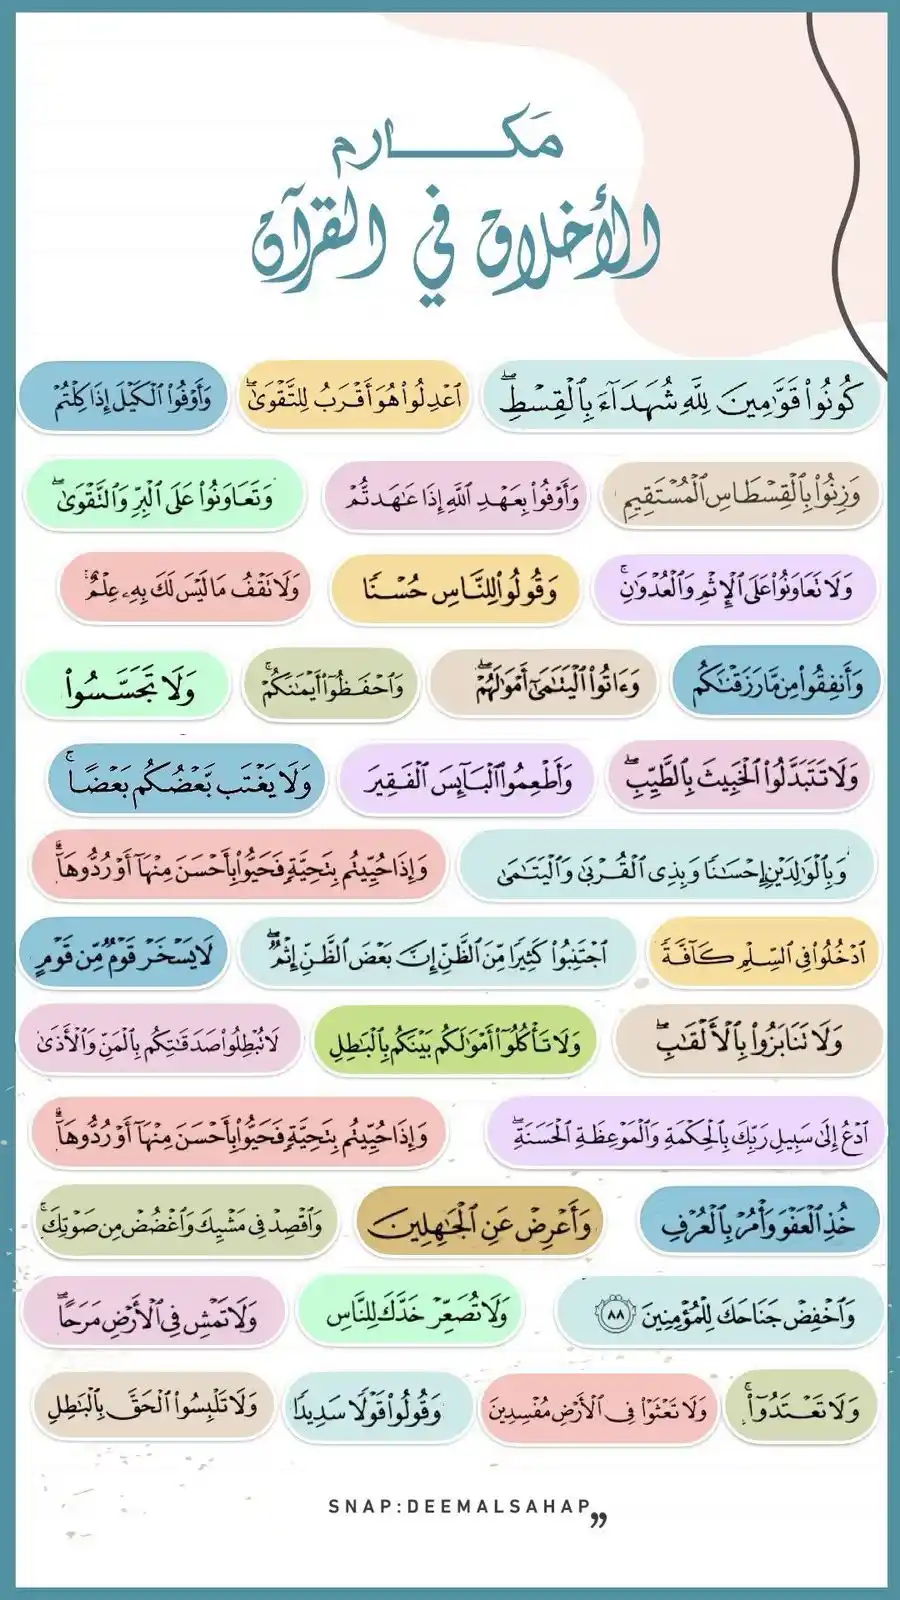 مَكـــــارم
الأخلاق في القرآن
كُونُوا۟ قَوَّٰمِينَ لِلَّهِ شُهَدَآءَ بِٱلْقِسْطِ ۖ
ٱعْدِلُوا۟ هُوَ أَقْرَبُ لِلتَّقْوَىٰ ۖ
وَأَوْفُوا۟ ٱلْكَيْلَ إِذَا كِلْتُمْ
وَزِنُوا۟ بِٱلْقِسْطَاسِ ٱلْمُسْتَقِيمِ
وَأَوْفُوا۟ بِعَهْدِ ٱللَّهِ إِذَا عَٰهَدتُّمْ
وَتَعَاوَنُوا۟ عَلَى ٱلْبِرِّ وَٱلتَّقْوَىٰ ۖ
وَلَا تَعَاوَنُوا۟ عَلَى ٱلْإِثْمِ وَٱلْعُدْوَٰنِ ۚ
وَقُولُوا۟ لِلنَّاسِ حُسْنًا
وَلَا تَقْفُ مَا لَيْسَ لَكَ بِهِۦ عِلْمٌ ۚ
وَأَنفِقُوا۟ مِن مَّا رَزَقْنَٰكُم
وَءَاتُوا۟ ٱلْيَتَٰمَىٰٓ أَمْوَٰلَهُمْ ۖ
وَٱحْفَظُوٓا۟ أَيْمَٰنَكُمْ ۚ
وَلَا تَجَسَّسُوا۟
وَلَا تَتَبَدَّلُوا۟ ٱلْخَبِيثَ بِٱلطَّيِّبِ ۖ
وَأَطْعِمُوا۟ ٱلْبَآئِسَ ٱلْفَقِيرَ
وَلَا يَغْتَب بَّعْضُكُم بَعْضًا ۚ
وَبِٱلْوَٰلِدَيْنِ إِحْسَانًا وَبِذِى ٱلْقُرْبَىٰ وَٱلْيَتَٰمَىٰ
وَإِذَا حُيِّيتُم بِتَحِيَّةٍ فَحَيُّوا۟ بِأَحْسَنَ مِنْهَآ أَوْ رُدُّوهَآ ۗ
ٱدْخُلُوا۟ فِى ٱلسِّلْمِ كَآفَّةً
ٱجْتَنِبُوا۟ كَثِيرًا مِّنَ ٱلظَّنِّ إِنَّ بَعْضَ ٱلظَّنِّ إِثْمٌ ۖ
لَا يَسْخَرْ قَوْمٌ مِّن قَوْمٍ
وَلَا تَنَابَزُوا۟ بِٱلْأَلْقَٰبِ ۖ
وَلَا تَأْكُلُوٓا۟ أَمْوَٰلَكُم بَيْنَكُم بِٱلْبَٰطِلِ
لَا تُبْطِلُوا۟ صَدَقَٰتِكُم بِٱلْمَنِّ وَٱلْأَذَىٰ
ٱدْعُ إِلَىٰ سَبِيلِ رَبِّكَ بِٱلْحِكْمَةِ وَٱلْمَوْعِظَةِ ٱلْحَسَنَةِ ۖ
وَإِذَا حُيِّيتُم بِتَحِيَّةٍ فَحَيُّوا۟ بِأَحْسَنَ مِنْهَآ أَوْ رُدُّوهَآ ۗ
خُذِ ٱلْعَفْوَ وَأْمُرْ بِٱلْعُرْفِ
وَأَعْرِضْ عَنِ ٱلْجَٰهِلِينَ
وَٱقْصِدْ فِى مَشْيِكَ وَٱغْضُضْ مِن صَوْتِكَ ۚ
وَٱخْفِضْ جَنَاحَكَ لِلْمُؤْمِنِينَ ٨٨
وَلَا تُصَعِّرْ خَدَّكَ لِلنَّاسِ
وَلَا تَمْشِ فِى ٱلْأَرْضِ مَرَحًا ۖ
وَلَا تَعْتَدُوٓا۟ ۚ
وَلَا تَعْثَوْا۟ فِى ٱلْأَرْضِ مُفْسِدِينَ
وَقُولُوا۟ قَوْلًا سَدِيدًا
وَلَا تَلْبِسُوا۟ ٱلْحَقَّ بِٱلْبَٰطِلِ
SNAP:DEEMALSAHAP,,